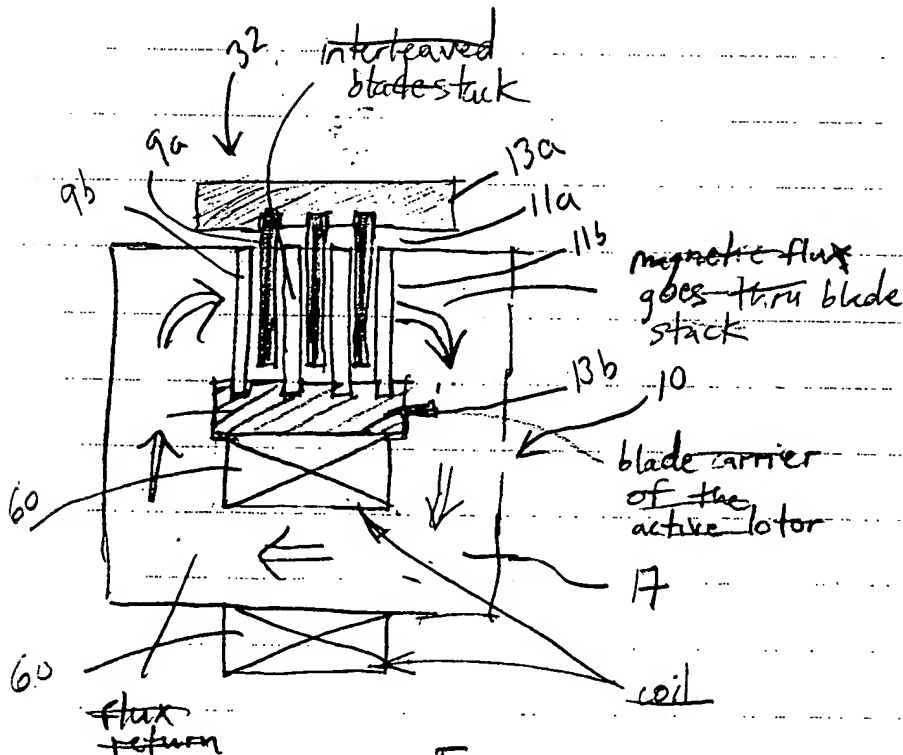 32
interleaved
blade stack
9a
9b
13a
11a
11b
magnetic flux
goes thru blade
stack
13b
10
blade carrier
of the
active lotor
17
60
60
coil
flux
return